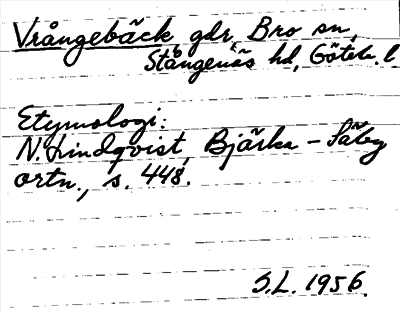 Vrångebäck gdr, Bro sn,
Stångenäs hd, Göteb. l
Etymologi:
N. Lindqvist, Bjärka-Säby
ortn., s. 448.
S.L. 1956.